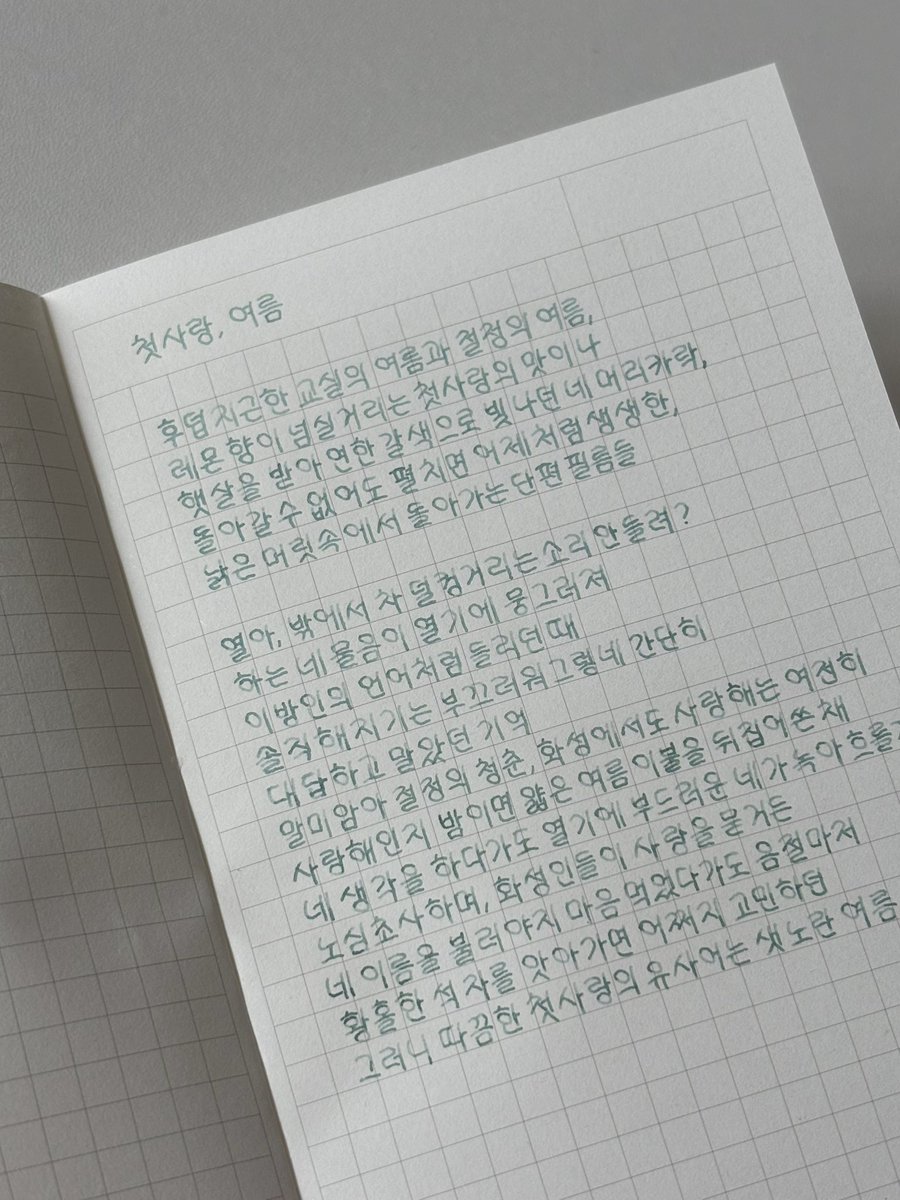 첫사랑, 여름
후덥지근한 교실의 여름과 절정의 여름,
레몬향이 넘실거리는 첫사랑의 맛이나
햇살을 받아 연한 갈색으로 빛나던 네 머리카락,
돌아갈 수 없어도 펼치면 어제처럼 생생한,
낡은 머릿속에서 돌아가는 단편 필름들
열아, 밖에서 차 덜컹거리는 소리 안 들려?
하는 네 물음이 열기에 뭉그러져
이방인의 언어처럼 들리던 때
솔직해지기는 부끄러워 그렇네 간단히
대답하고 말았던 기억
말미암아 절정의 청춘, 화성에서도 사랑해는 여전히
사랑해인지 밤이면 얇은 여름 이불을 뒤집어쓴 채
네 생각을 하다가도 열기에 부드러운 네가 녹아 흐를까
노심초사하며, 화성인들이 사랑을 묻거든
네 이름을 불러야지 마음 먹었다가도 음절마저
황홀한 석 자를 앗아가면 어쩌지 고민하던
그러니 따끔한 첫사랑의 유사어는 샛노란 여름